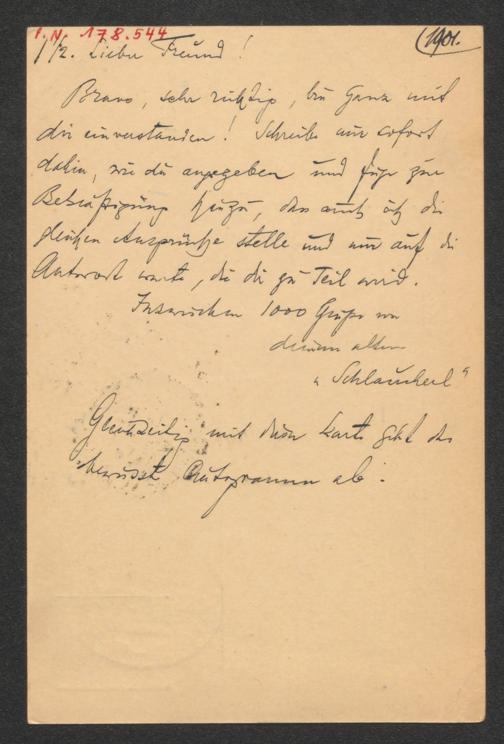 I.N. 178.544
1901.
1/2. Lieber Freund!
Bravo, sehr richtig, bin ganz mit
dir einverstanden! Schreibe nur sofort
dahin, wie du angegeben und füge zur
Bekräftigung hinzu, das auch ich die
gleichen Ansprüche stelle und nur auf die
Antwort warte, die dir zu Teil wird.
Inzwischen 1000 Grüße von
deinem alten
"Schlaucherl"
Gleichzeitig mit dieser Karte geht das
bewusste Autogramm ab.